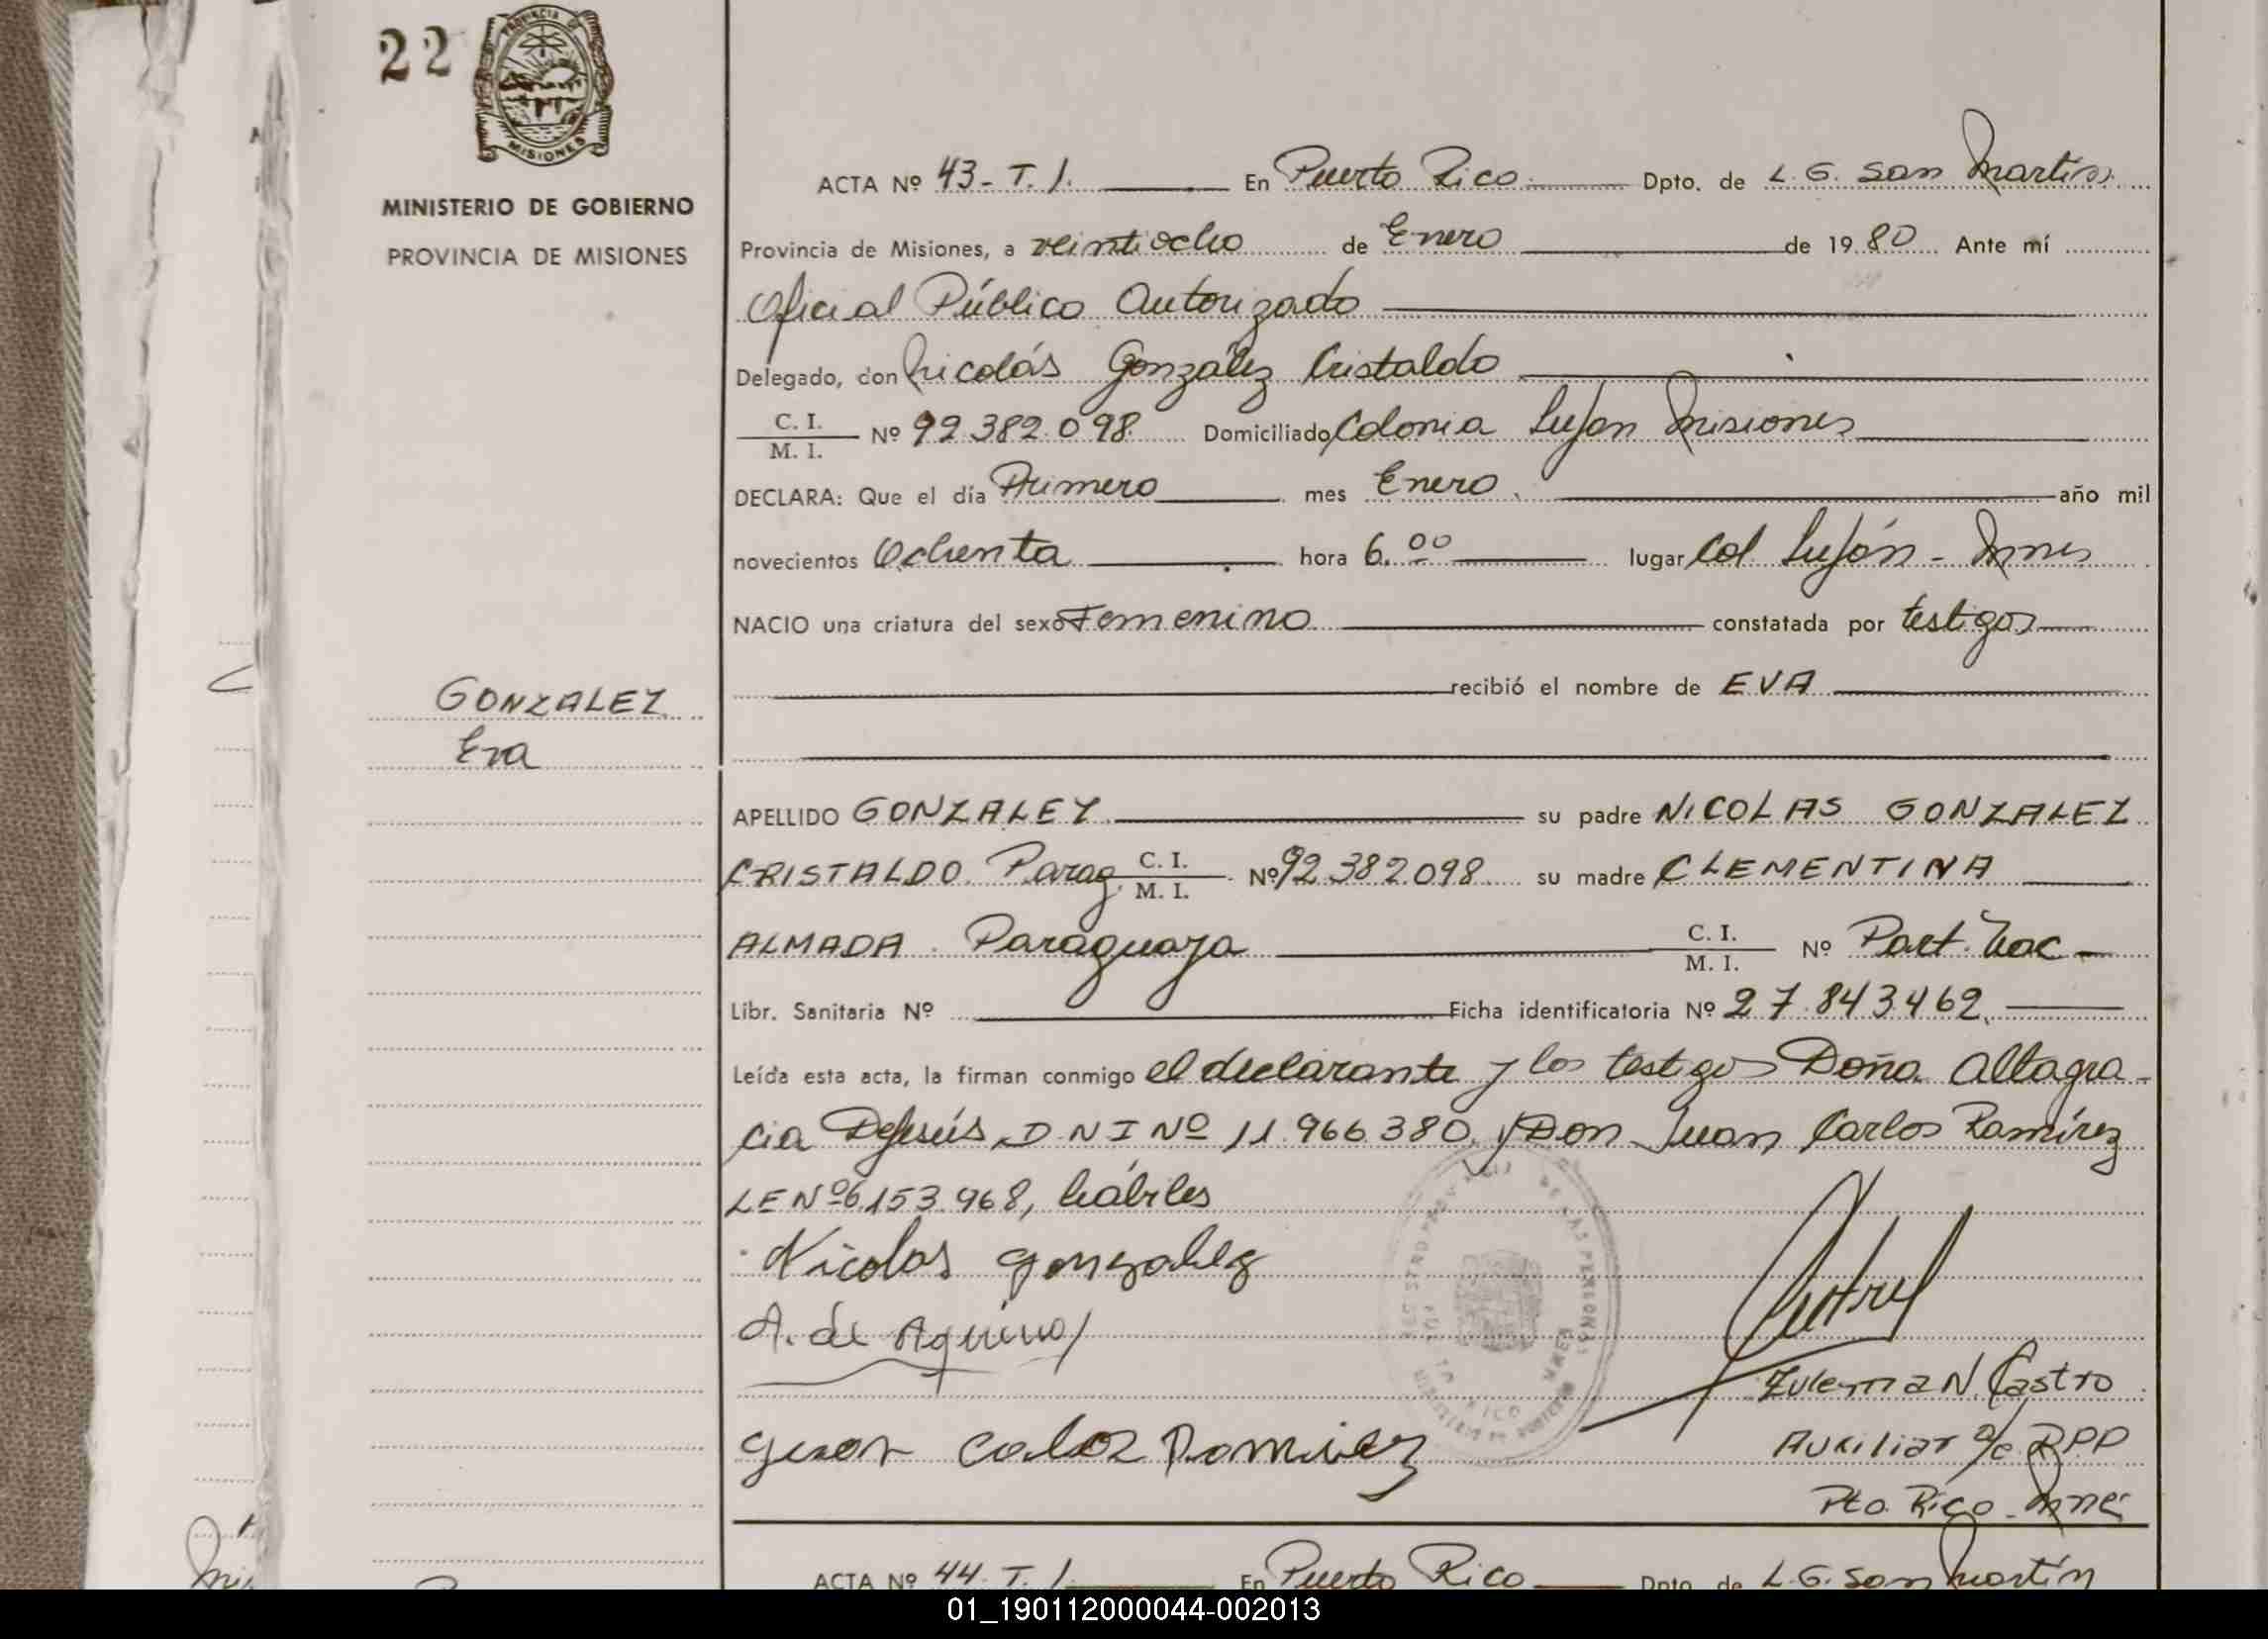 22
PROVINCIA DE
MISIONES
MINISTERIO DE GOBIERNO
PROVINCIA DE MISIONES
GONZALEZ
Eva
ACTA Nº 43- T. 1. En Puerto Rico Dpto. de L. G. San Martín
Provincia de Misiones, a veintiocho de Enero de 1980 Ante mí
Oficial Público Autorizado
Delegado, don Nicolás González Cristaldo
C. I. / M. I. Nº 92.382.098 Domiciliado Colonia Luján Misiones
DECLARA: Que el día Primero mes Enero. año mil
novecientos Ochenta hora 6.00 lugar Col. Luján - Mnes
NACIO una criatura del sexo Femenino constatada por testigos
recibió el nombre de EVA
APELLIDO GONZALEZ su padre NICOLAS GONZALEZ
CRISTALDO. Parag. C. I. / M. I. Nº 92.382.098 su madre CLEMENTINA
ALMADA. Paraguaya C. I. / M. I. Nº Part. Nac -
Libr. Sanitaria Nº Ficha identificatoria Nº 27.843.462.
Leída esta acta, la firman conmigo el declarante y los testigos Doña Altagra-
cia DeJesús, D N I Nº 11.966.380, y Don Juan Carlos Ramírez
LE Nº 6.153.968, hábiles
Nicolas gonzalez
A. de Aquino
Carloz Ramirez
Zulema N. Castro
Auxiliar a/c RPP
Pto. Rico - Mnes
ACTA Nº 44- T. 1 En Puerto Rico Dpto. de L. G. San Martín
01_190112000044-002013